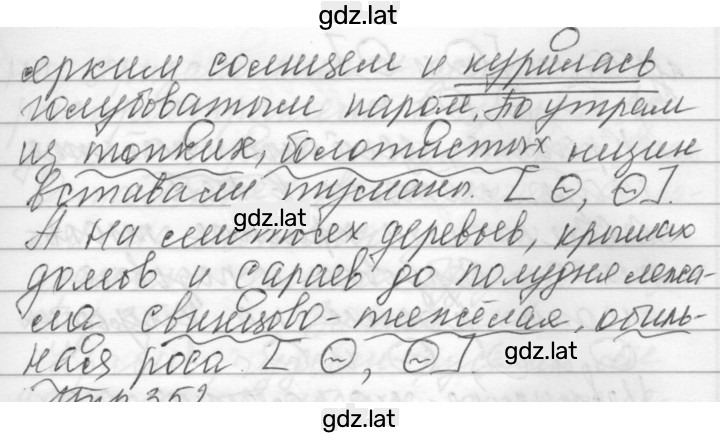 gdz.lat
ерким солнцем и курилась
голубоватым паром. По утрам
из топких, болотистых низин
вставали туманы. [ ~, ~ ].
gdz.lat
А на листьях деревьев, крышах
домов и сараев до полудня лежа-
ла свинцово-тяжёлая, обиль-
ная роса. [ ~, ~ ]
gdz.lat
gdz.lat